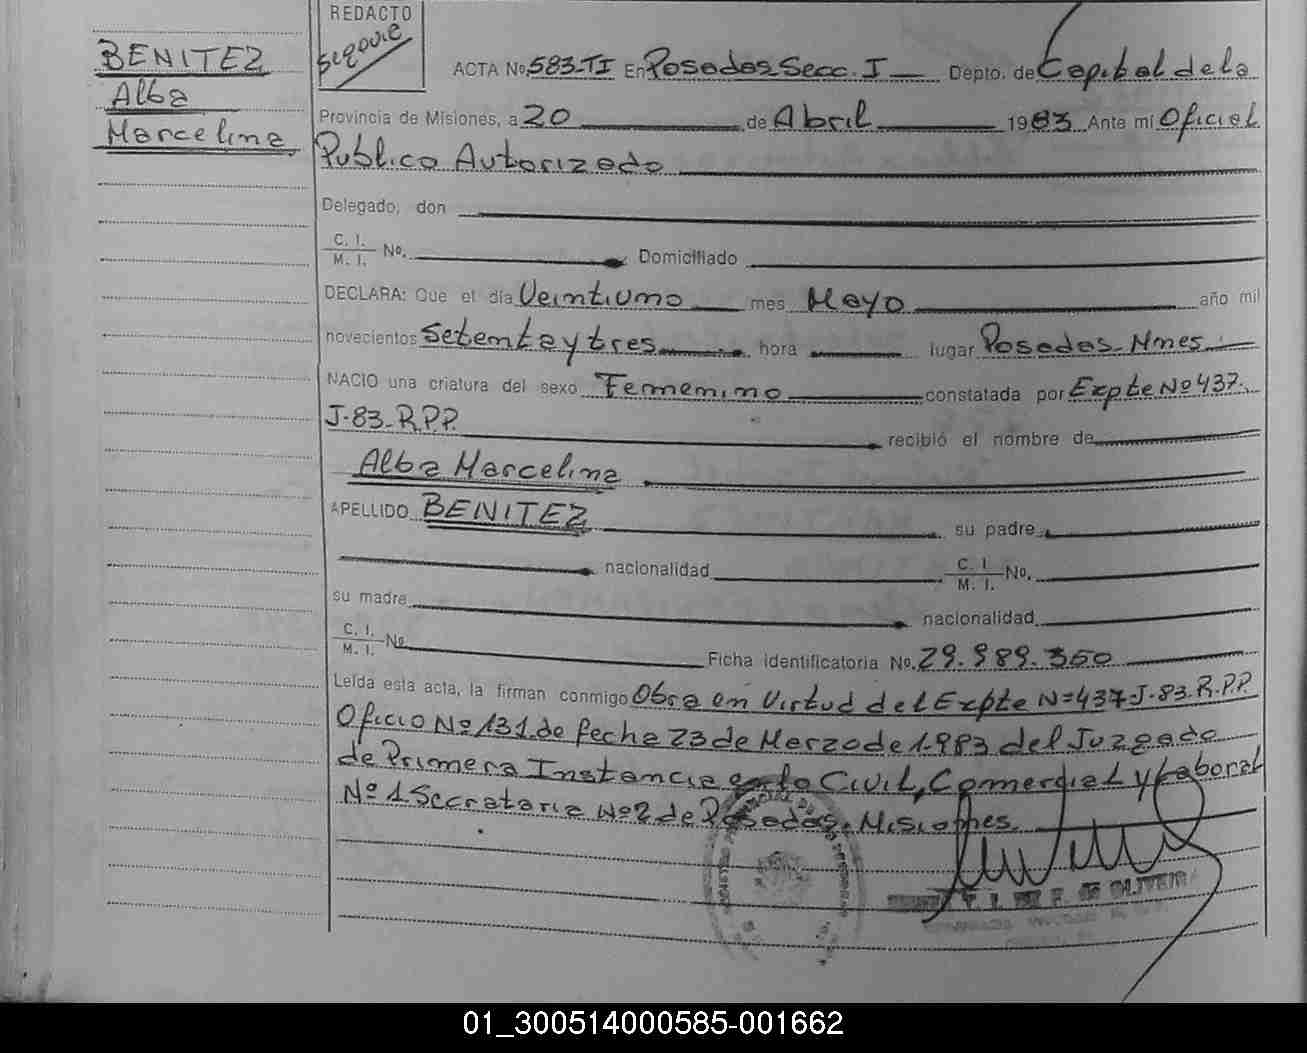 BENITEZ
Alba
Marcelina
REDACTO
ACTA No. 583-TI En Posadas Secc. I Depto. de Capital de la
Provincia de Misiones, a 20 de Abril 1983 Ante mi Oficial
Publico Autorizado
Delegado, don
C. I.
M. I. No. Domiciliado
DECLARA: Que el día Veintiuno mes Mayo año mil
novecientos Setenta y tres hora lugar Posadas Mnes.
NACIO una criatura del sexo Femenino constatada por Expte Nº 437.
J-83-R.P.P. recibió el nombre de
Alba Marcelina
APELLIDO BENITEZ su padre
nacionalidad C. I.
M. I. No.
su madre nacionalidad
C. I.
M. I. No. Ficha identificatoria No. 29.989.350
Leída esta acta, la firman conmigo Obra en Virtud del Expte N=437-J-83.R.P.P.
Oficio Nº 131 de fecha 23 de Marzo de 1.983 del Juzgado
de Primera Instancia en lo Civil, Comercial y Laboral
Nº 1 Secretaria Nº 2 de Posadas. Misiones.
DE OLIVEIRA
01_300514000585-001662